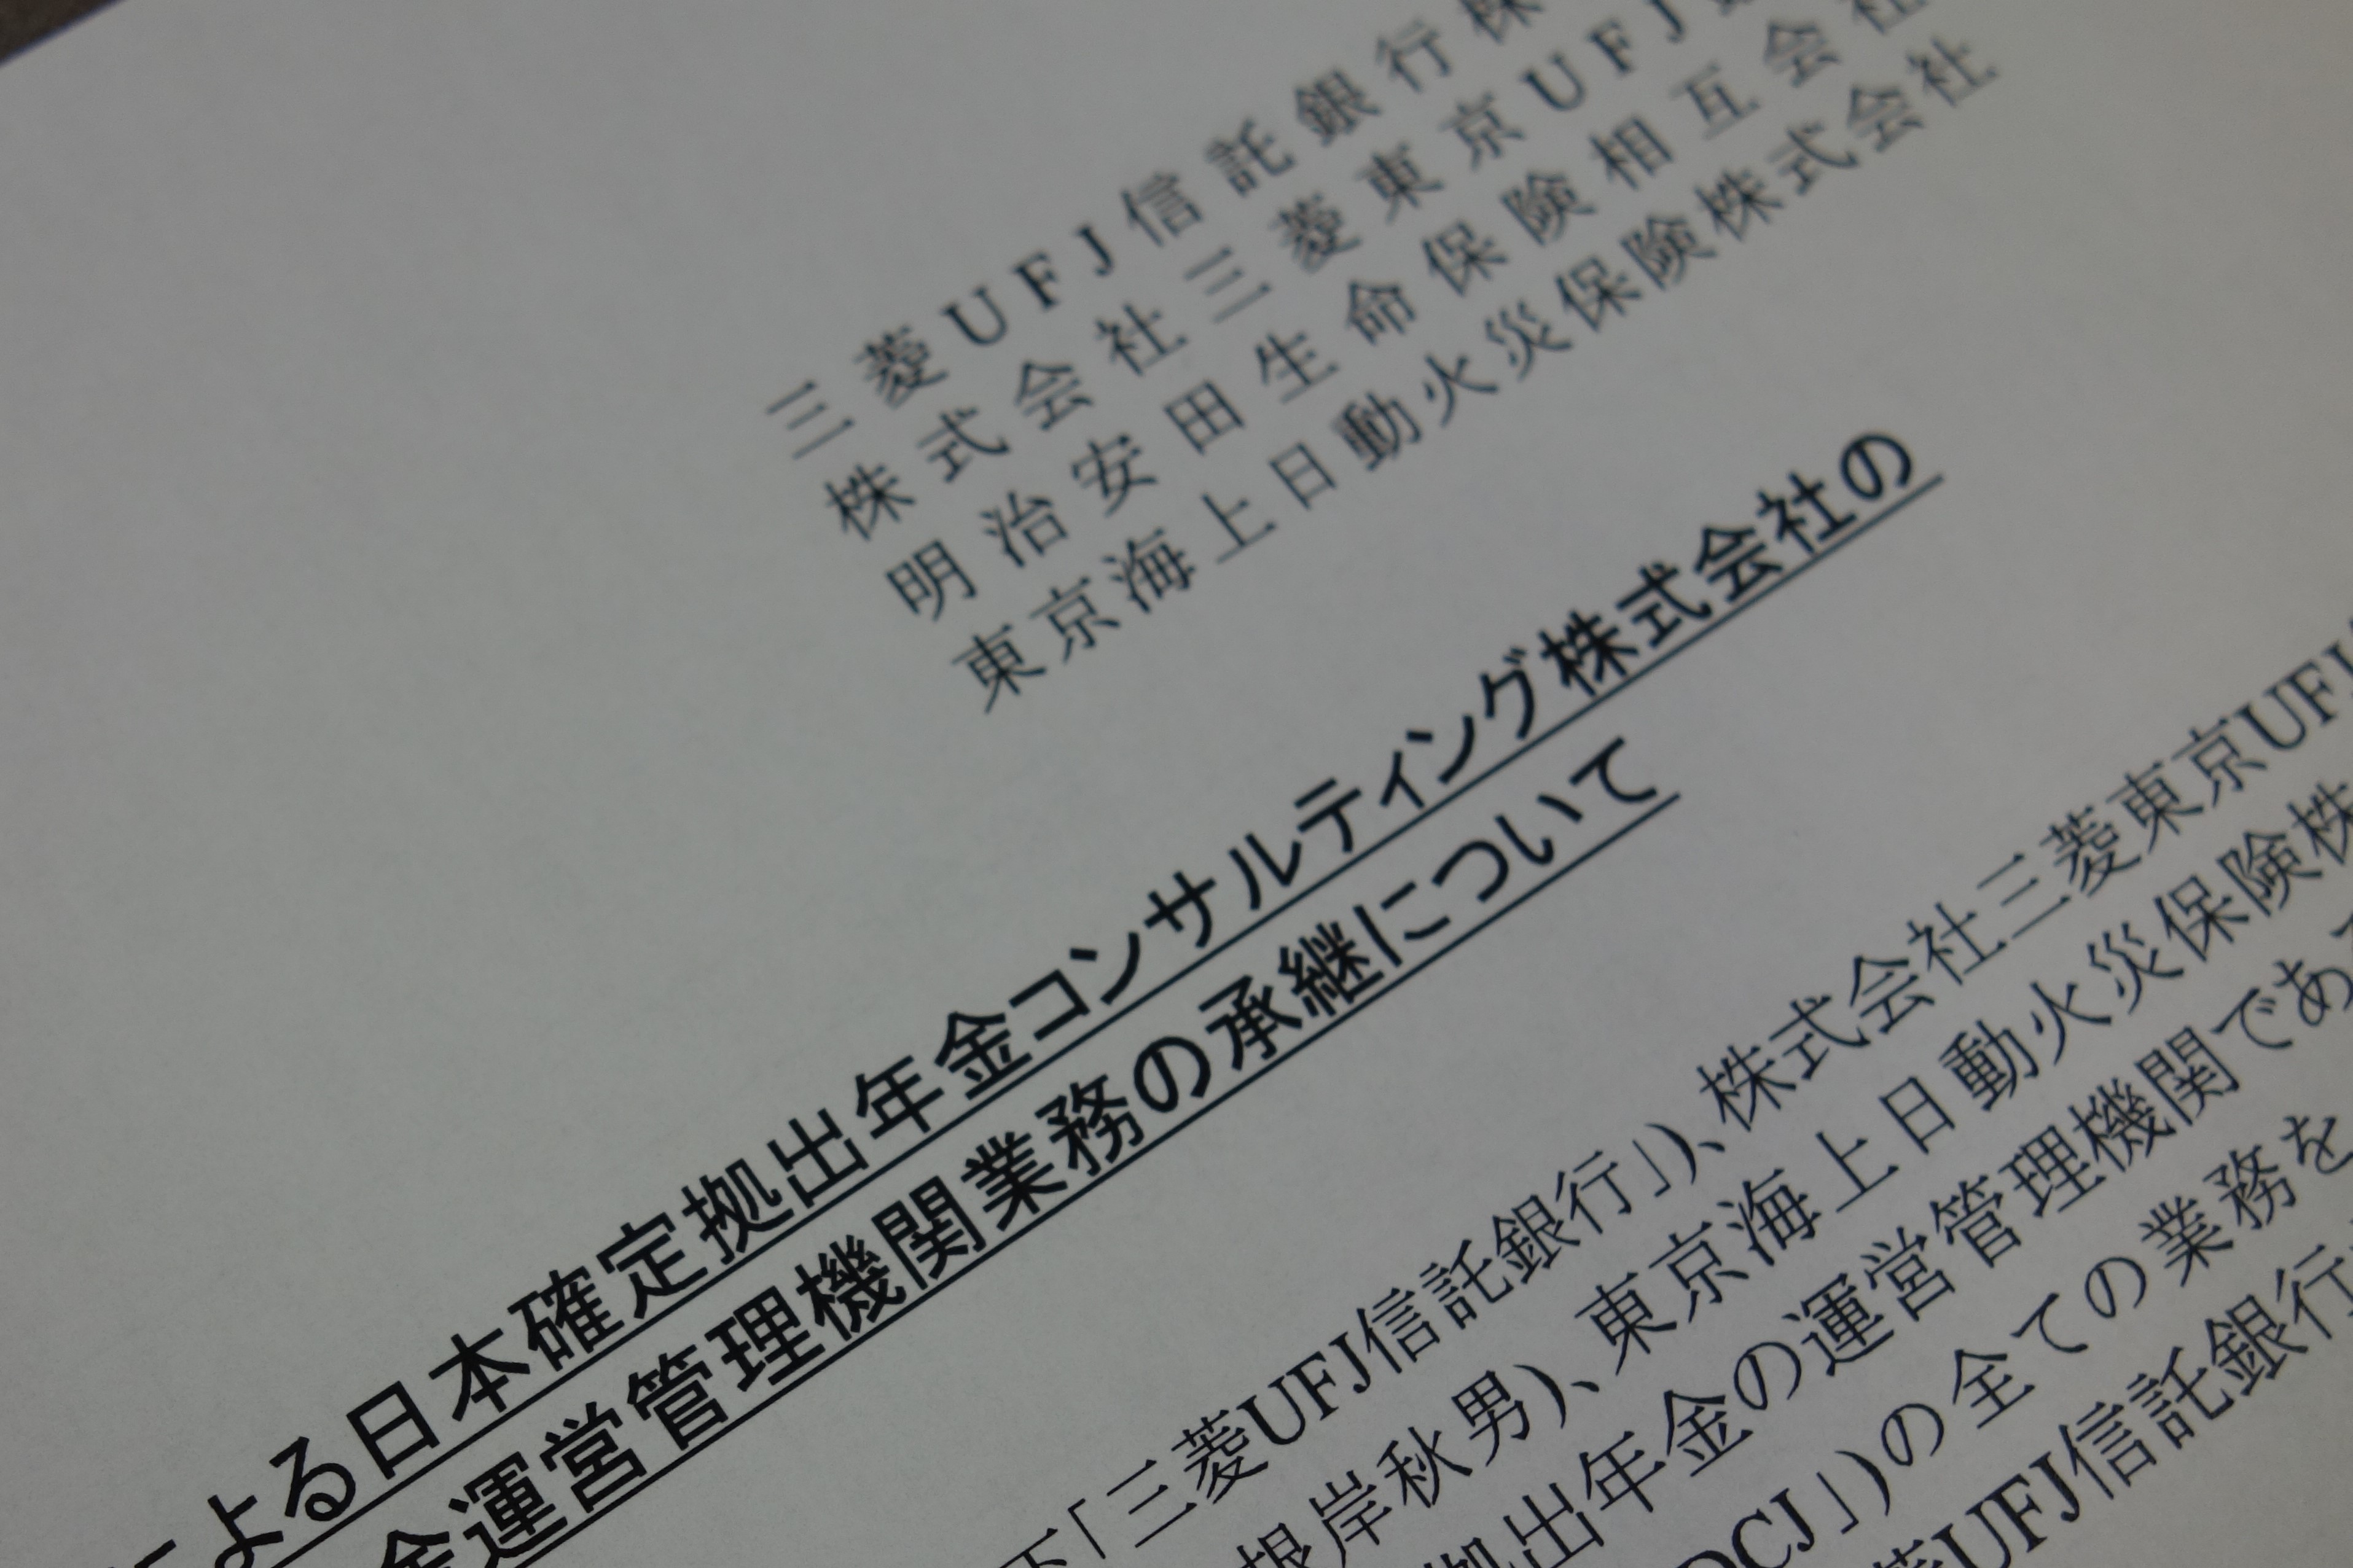 三菱UFJ信託銀行株
株式会社三菱東京UFJ
明治安田生命保険相互会社
東京海上日動火災保険株式会社
による日本確定拠出年金コンサルティング株式会社の
金運営管理機関業務の承継について
下「三菱UFJ信託銀行」)、株式会社三菱東京UFJ
根岸秋男)、東京海上日動火災保険株
拠出年金の運営管理機関であ
DCJ」)の全ての業務を
菱UFJ信託銀行